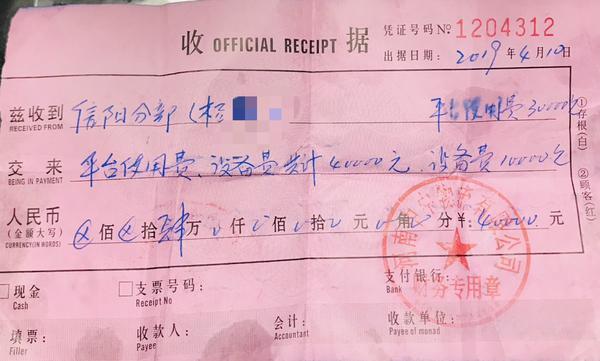 收 OFFICIAL RECEIPT 据
凭证号码№ 1204312
出据日期: 2019年4月10日
兹收到 信阳分部 平台使用费30000元
RECEIVED FROM
交来 平台使用费、设备费共计40000元、设备费10000元
BEING IN PAYMENT
人民币 佰 拾 肆万 0仟 0佰 0拾 0元 0角 分 ¥: 40000元
(金额大写)
CURRENCY(IN WORDS)
①存根(白)
②顾客(红)
河南 有限公司
财务专用章
□现金 □支票号码: 支付银行:
Cash Receipt No Bank
填票: 收款人: 会计: 收款单位:
Filler Payee Accountant Payee of monad